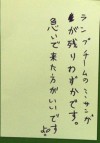 ランプチームのミーサング
が残りわずかです。
急いで来た方がいいです
よ